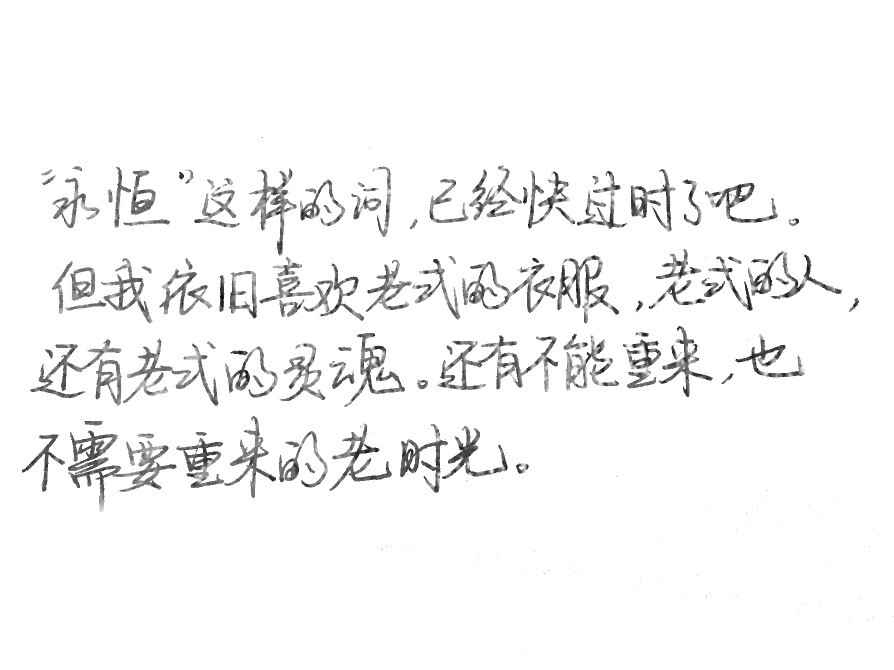 “永恒”这样的词,已经快过时了吧。
但我依旧喜欢老式的衣服,老式的人,
还有老式的灵魂。还有不能重来,也
不需要重来的老时光。